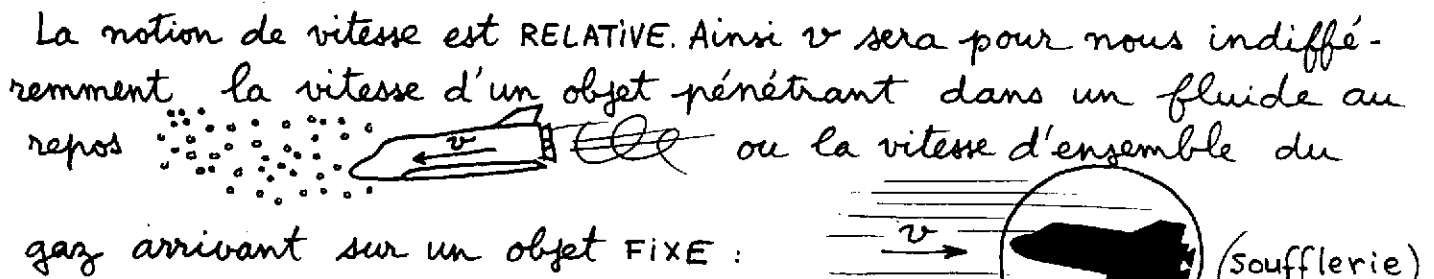 La notion de vitesse est RELATIVE. Ainsi v sera pour nous indiffé-
remment la vitesse d'un objet pénétrant dans un fluide au
repos v ou la vitesse d'ensemble du
gaz arrivant sur un objet FIXE : v (soufflerie)